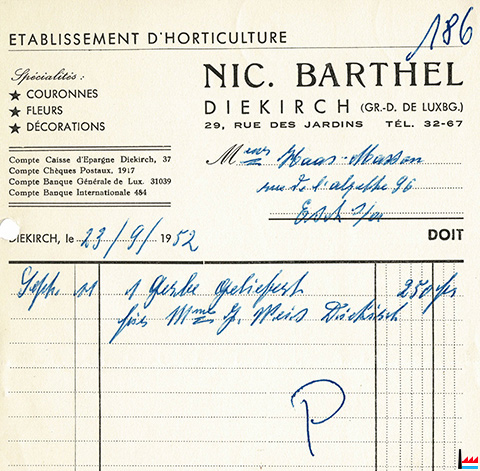 186
ETABLISSEMENT D'HORTICULTURE
Spécialités :
★ COURONNES
★ FLEURS
★ DÉCORATIONS
NIC. BARTHEL
DIEKIRCH (GR.-D. DE LUXBG.)
29, RUE DES JARDINS TÉL. 32-67
Compte Caisse d'Epargne Diekirch, 37
Compte Chèques Postaux, 1917
Compte Banque Générale de Lux. 31039
Compte Banque Internationale 484
M Haas-Masson
rue de l'alzette 96
Esch s/Al
DIEKIRCH, le 23/9/1952
DOIT
Sept. 1 Gerbe geliefert 250 frs
für Mme J. Weis Diekirch
P